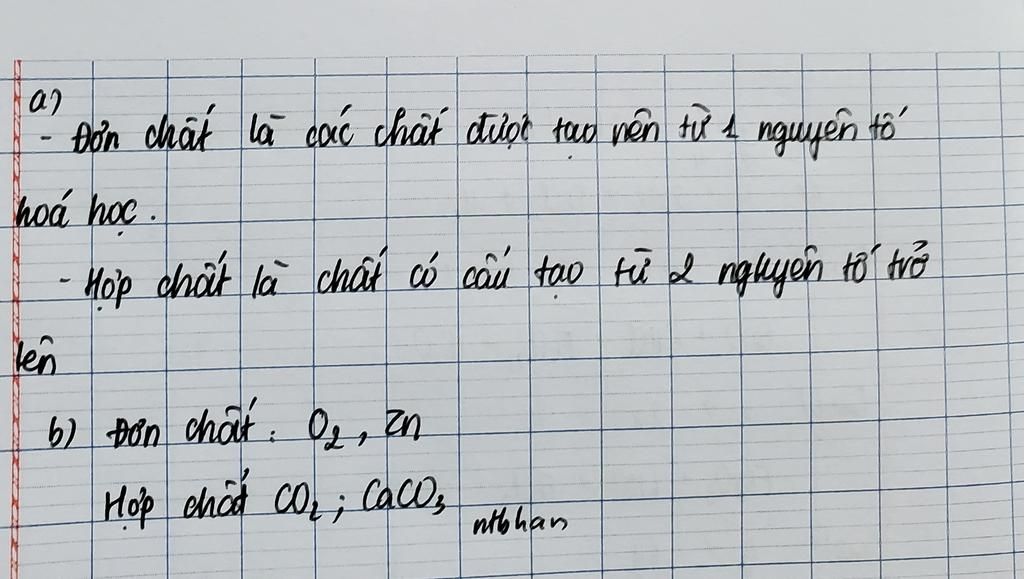 a)
- Đơn chất là các chất được tạo nên từ 1 nguyên tố
hoá học.
- Hợp chất là chất có cấu tạo từ 2 nguyên tố trở
lên
b) Đơn chất: O₂, Zn
Hợp chất CO₂; CaCO₃
ntbhan